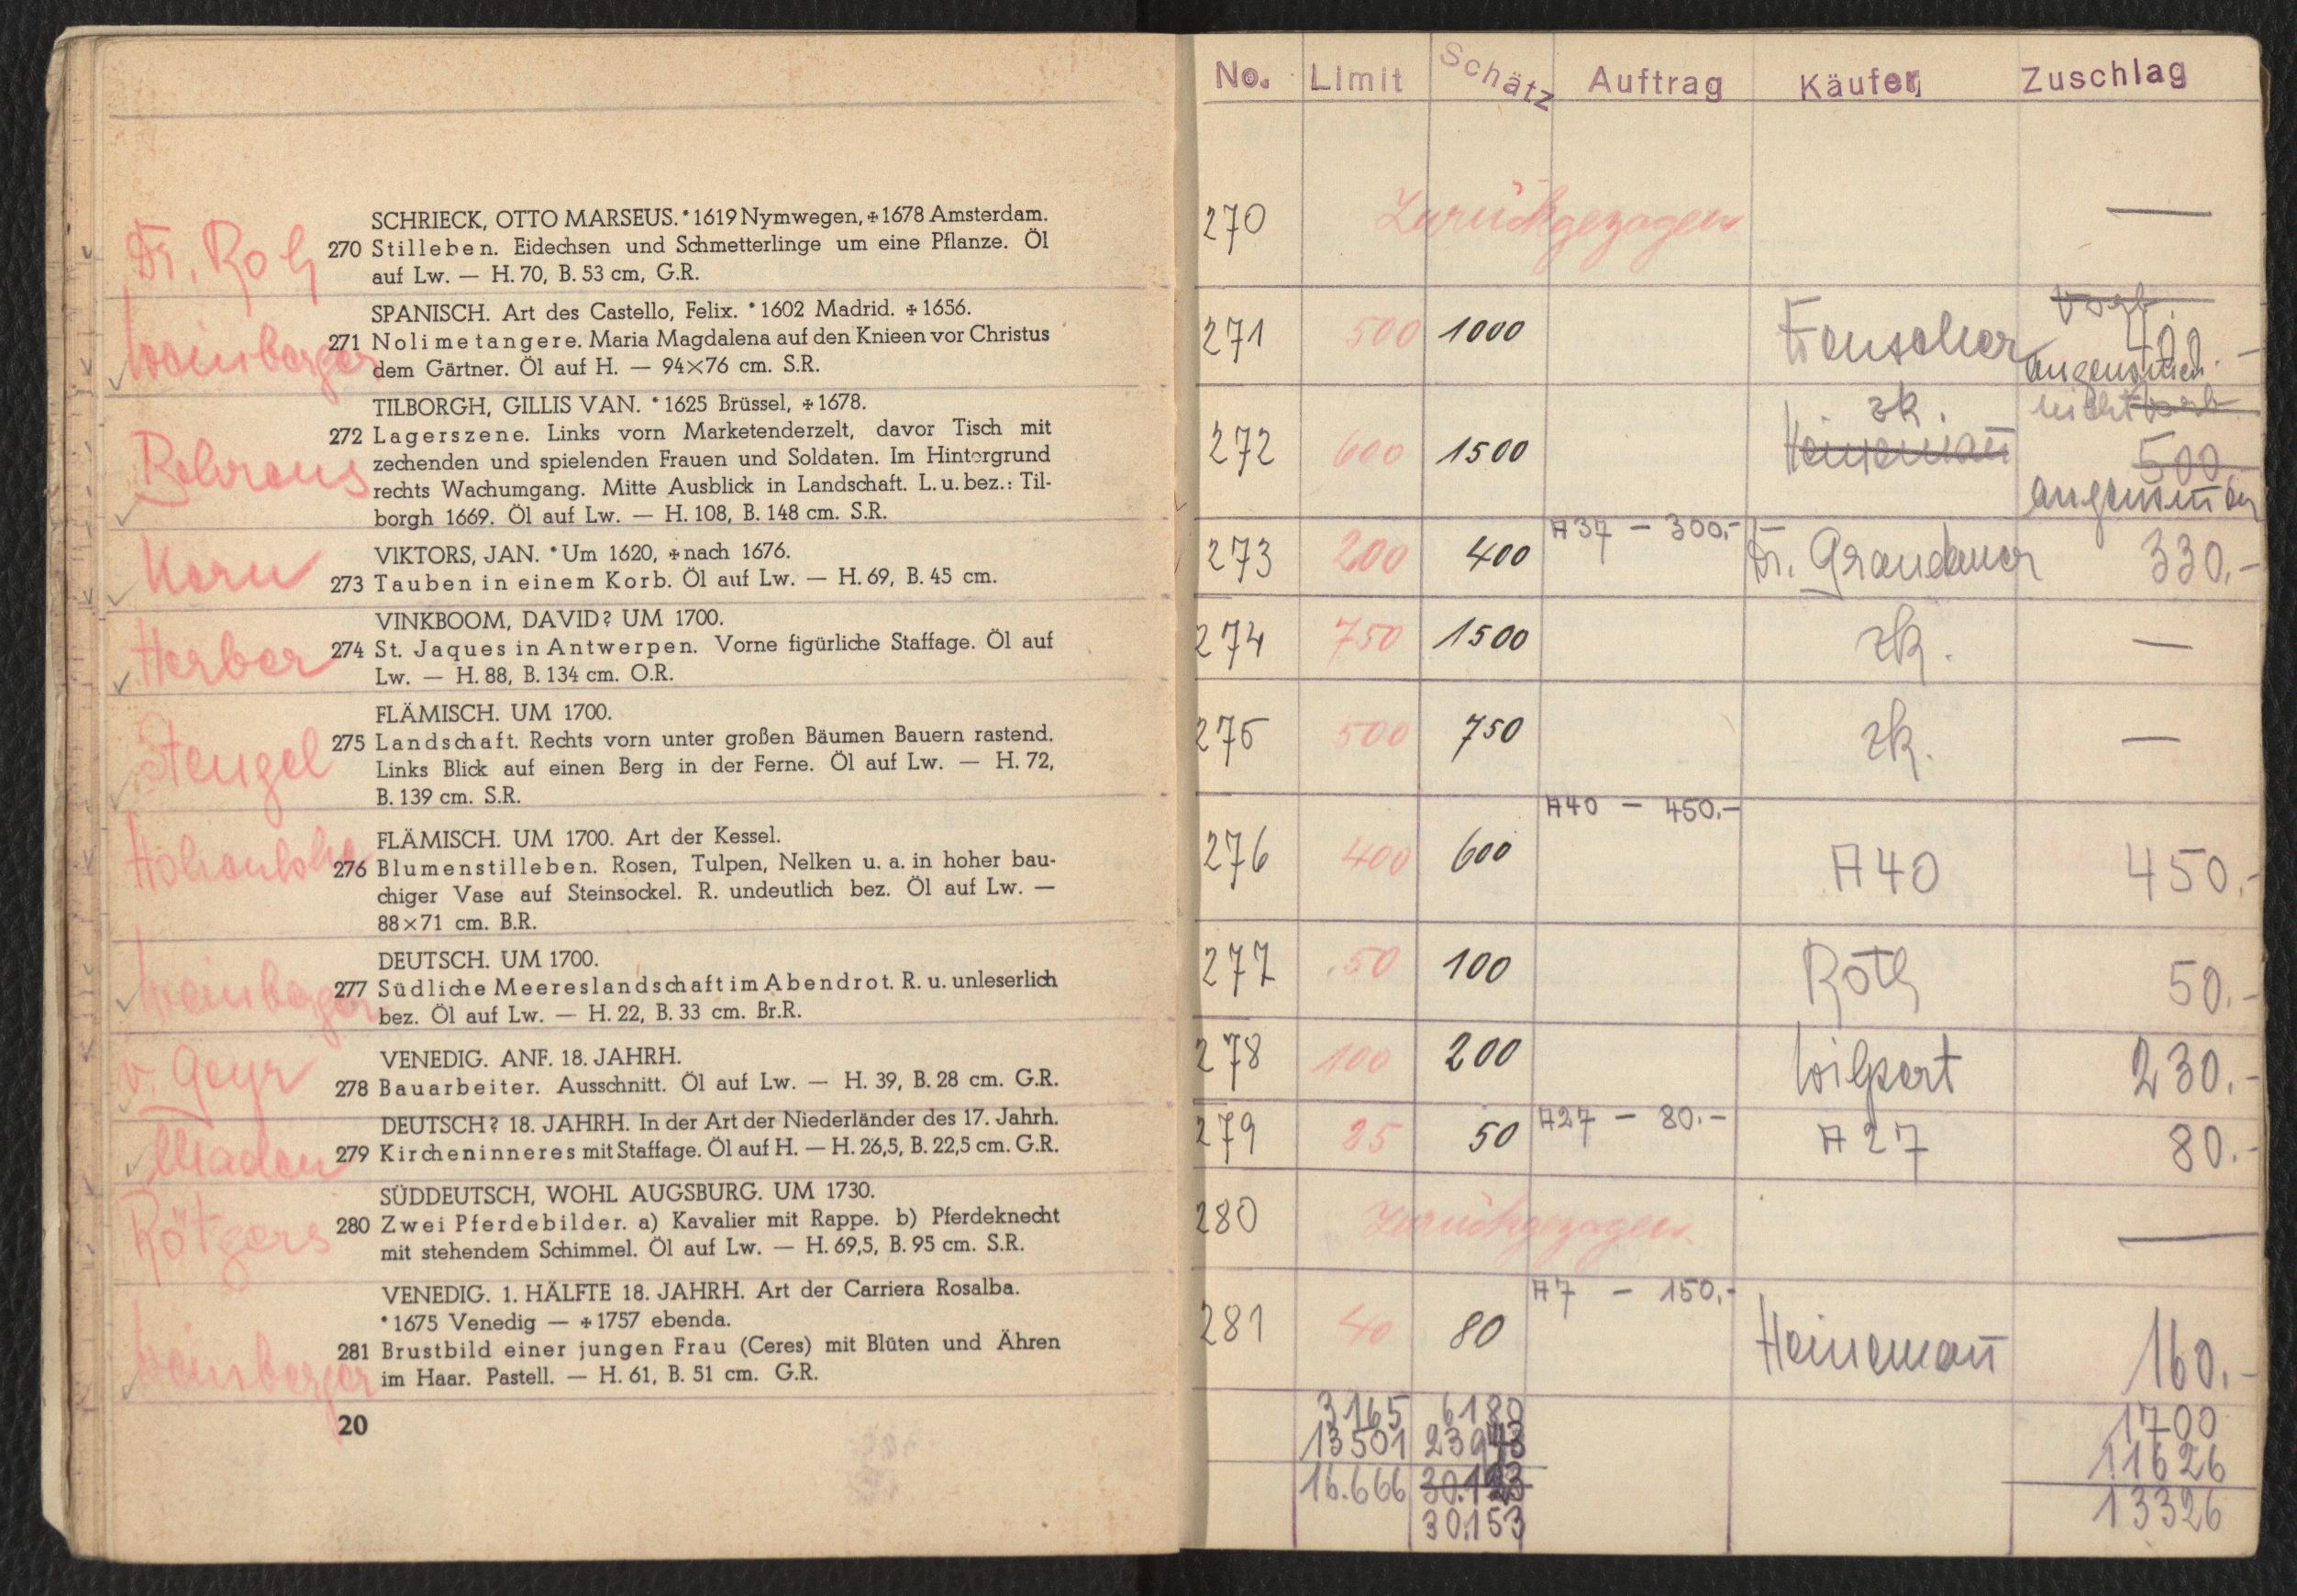 Dr. Roh
SCHRIECK, OTTO MARSEUS. *1619 Nymwegen, ✠1678 Amsterdam.
270 Stilleben. Eidechsen und Schmetterlinge um eine Pflanze. Öl
auf Lw. — H. 70, B. 53 cm, G.R.
Weinberger
SPANISCH. Art des Castello, Felix. *1602 Madrid. ✠1656.
271 Nolimetangere. Maria Magdalena auf den Knieen vor Christus
dem Gärtner. Öl auf H. — 94×76 cm. S.R.
Behrens
TILBORGH, GILLIS VAN. *1625 Brüssel, ✠1678.
272 Lagerszene. Links vorn Marketenderzelt, davor Tisch mit
zechenden und spielenden Frauen und Soldaten. Im Hintergrund
rechts Wachumgang. Mitte Ausblick in Landschaft. L. u. bez.: Til-
borgh 1669. Öl auf Lw. — H. 108, B. 148 cm. S.R.
Korn
VIKTORS, JAN. *Um 1620, ✠nach 1676.
273 Tauben in einem Korb. Öl auf Lw. — H. 69, B. 45 cm.
Herber
VINKBOOM, DAVID? UM 1700.
274 St. Jaques in Antwerpen. Vorne figürliche Staffage. Öl auf
Lw. — H. 88, B. 134 cm. O.R.
Stengel
FLÄMISCH. UM 1700.
275 Landschaft. Rechts vorn unter großen Bäumen Bauern rastend.
Links Blick auf einen Berg in der Ferne. Öl auf Lw. — H. 72,
B. 139 cm. S.R.
Hohenlohe
FLÄMISCH. UM 1700. Art der Kessel.
276 Blumenstilleben. Rosen, Tulpen, Nelken u. a. in hoher bau-
chiger Vase auf Steinsockel. R. undeutlich bez. Öl auf Lw. —
88×71 cm. B.R.
Weinberger
DEUTSCH. UM 1700.
277 Südliche Meereslandschaft im Abendrot. R. u. unleserlich
bez. Öl auf Lw. — H. 22, B. 33 cm. Br.R.
v. Geyr
VENEDIG. ANF. 18. JAHRH.
278 Bauarbeiter. Ausschnitt. Öl auf Lw. — H. 39, B. 28 cm. G.R.
Maden
DEUTSCH? 18. JAHRH. In der Art der Niederländer des 17. Jahrh.
279 Kircheninneres mit Staffage. Öl auf H. — H. 26,5, B. 22,5 cm. G.R.
Rötgers
SÜDDEUTSCH, WOHL AUGSBURG. UM 1730.
280 Zwei Pferdebilder. a) Kavalier mit Rappe. b) Pferdeknecht
mit stehendem Schimmel. Öl auf Lw. — H. 69,5, B. 95 cm. S.R.
Weinberger
VENEDIG. 1. HÄLFTE 18. JAHRH. Art der Carriera Rosalba.
*1675 Venedig — ✠1757 ebenda.
281 Brustbild einer jungen Frau (Ceres) mit Blüten und Ähren
im Haar. Pastell. — H. 61, B. 51 cm. G.R.
20
No. Limit Schätz Auftrag Käufer Zuschlag
270 Zurückgezogen —
271 500 1000 vorb. 400.-
angenommen
272 600 1500 zk. Heinemañ nicht vorb 500
angenommen
273 200 400 A37 - 300.- Dr. Grandauer 330.-
274 750 1500 zk. —
275 500 750 zk. —
276 400 600 A40 - 450.- A40 450.-
277 50 100 Roth 50.-
278 100 200 Wilpert 230.-
279 25 50 A27 - 80.- A27 80.-
280 Zurückgezogen —
281 40 80 A7 - 150.- Heinemañ 160.-
3165 6180 1700
13501 11626
16.666 30.153 13326